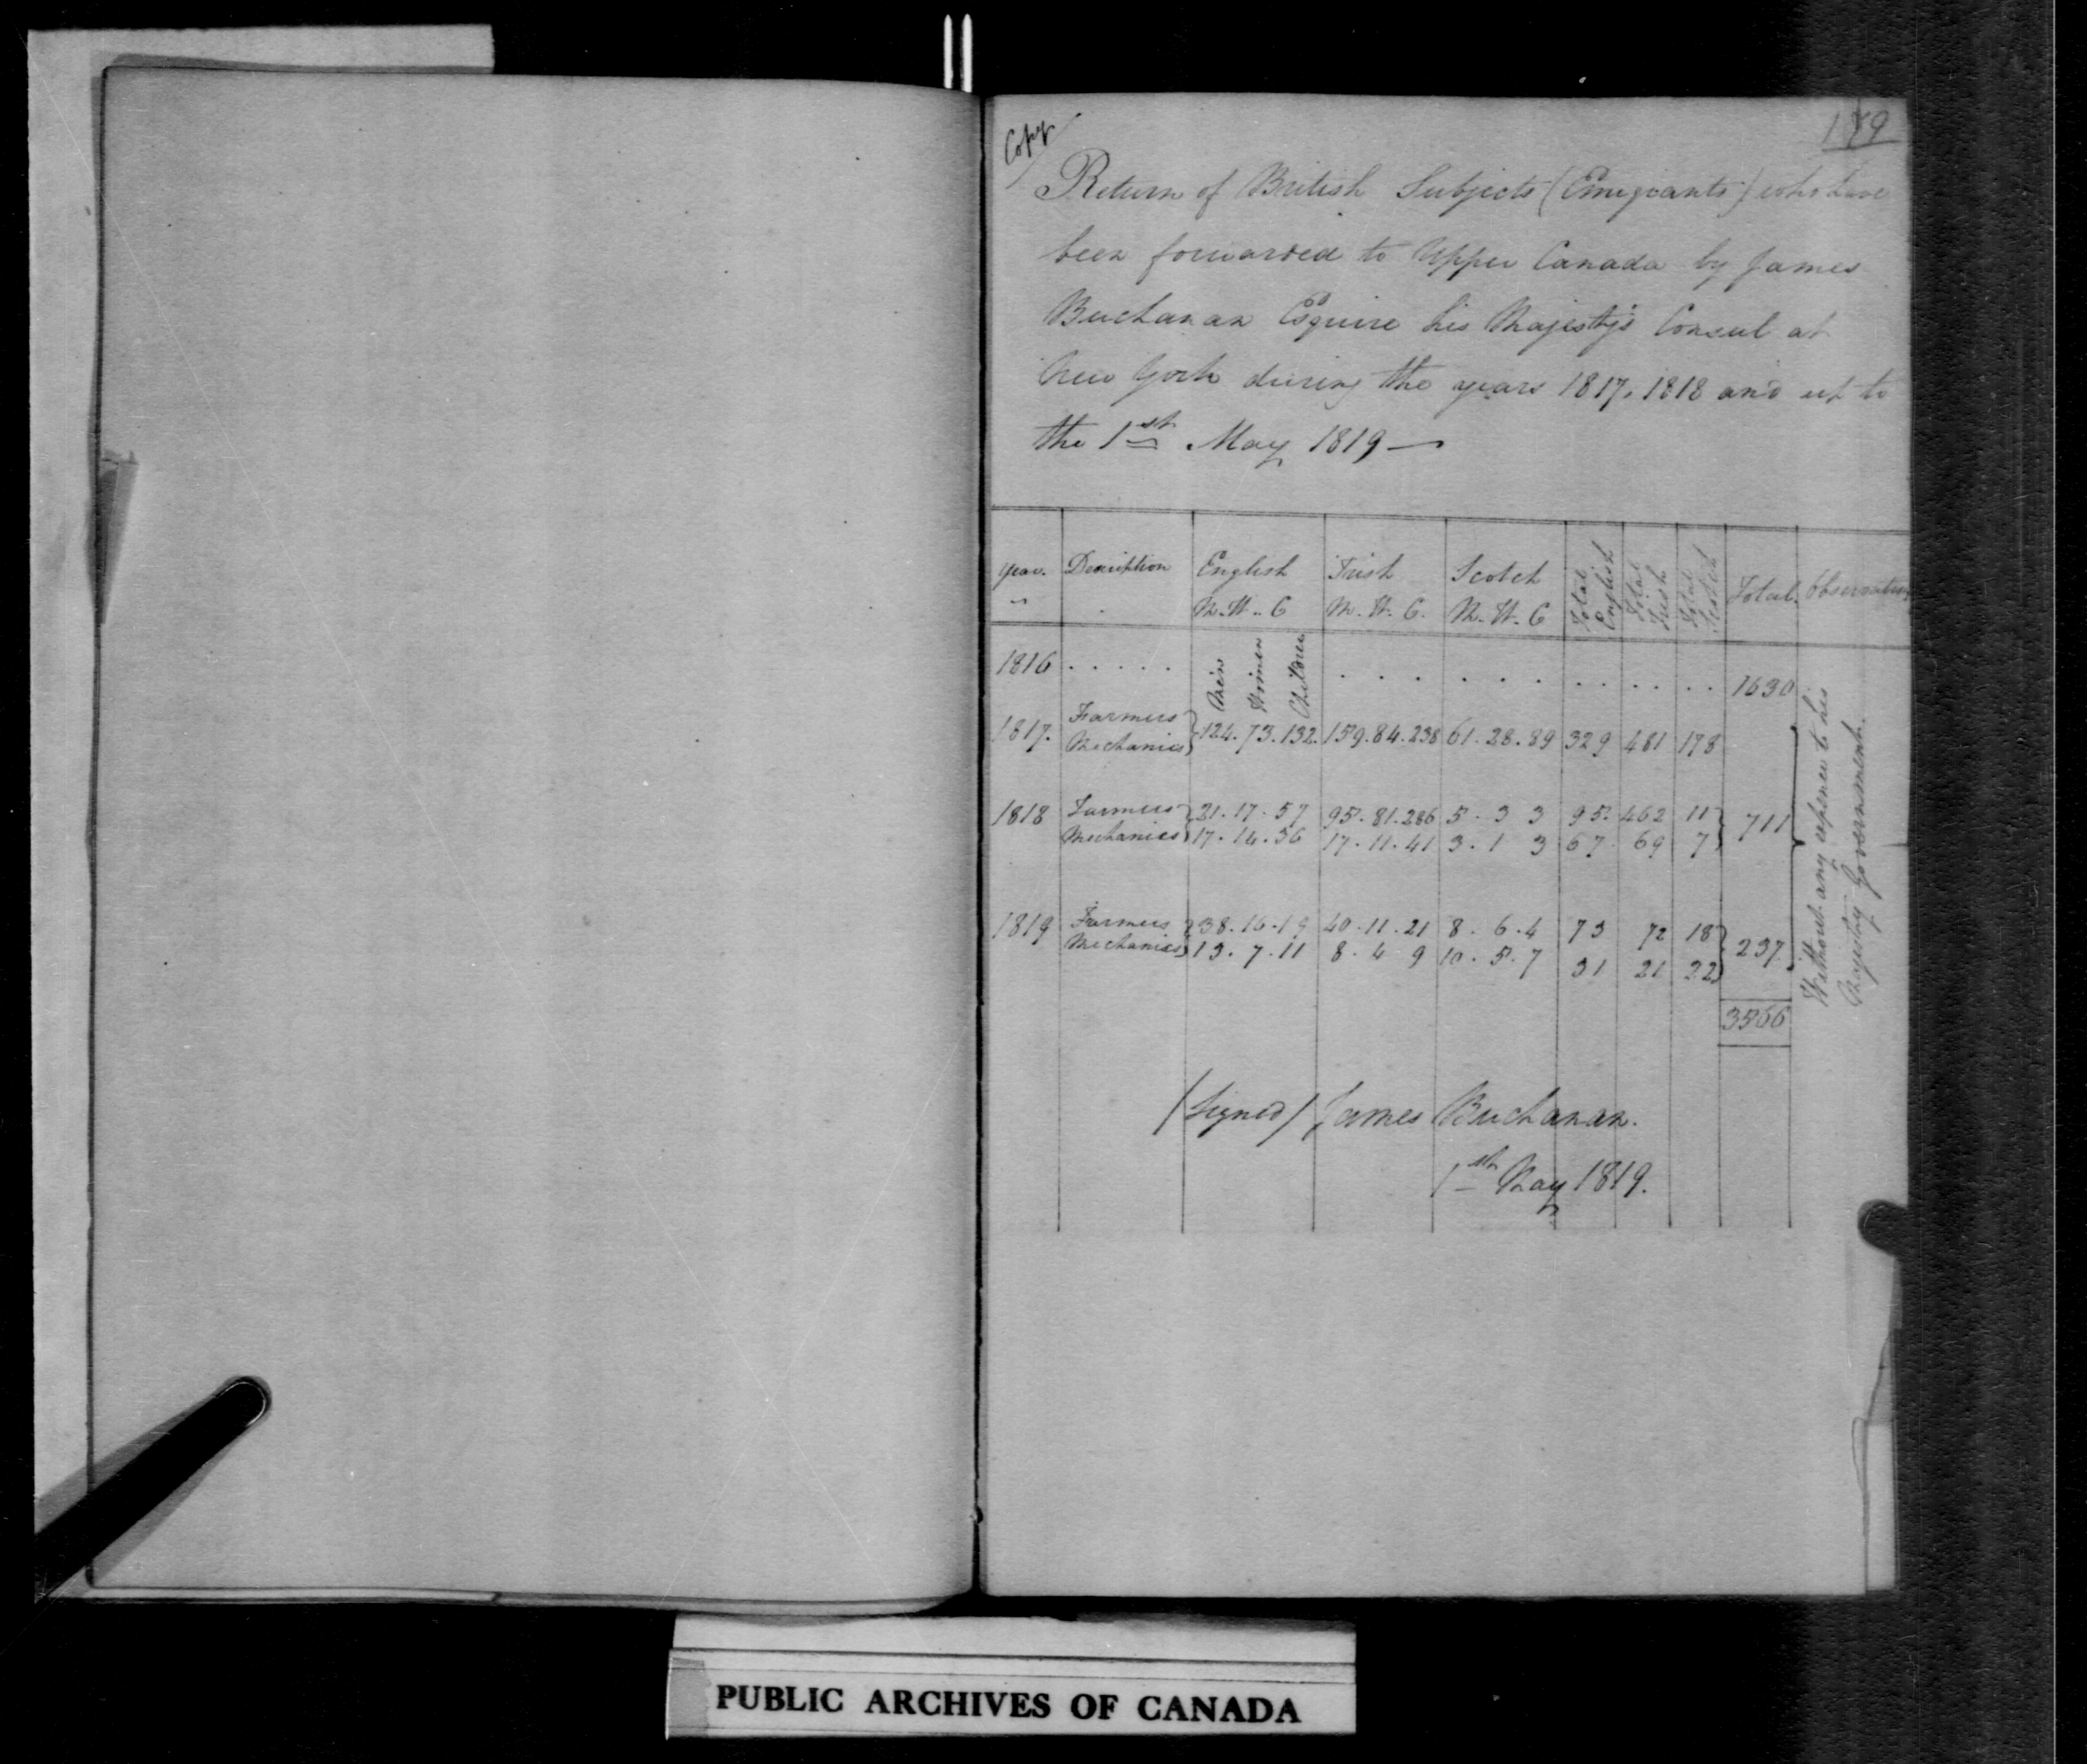 Copy
179
Return of British Subjects (Emigrants) who have
been forwarded to Upper Canada by James
Buchanan Esquire his Majesty's Consul at
New York during the years 1817, 1818 and up to
the 1st May 1819 —
Year. Description English Irish Scotch Total English Total Irish Total Scotch Total. Observations
M. W. C M. W. C. M. W. C
1816 . . . . . Men Women Children . . . . . . . . . . . . 1630
1817. Farmers Mechanics } 124. 73. 132. 159. 84. 238 61. 28. 89 329 481 178
1818 Farmers } 21. 17. 57 95. 81. 286 5. 3 3 95. 462 11 } 711
Mechanics } 17. 14. 36 17. 11. 41 3. 1 3 67 69 7
1819 Farmers } 38. 16. 19 40. 11. 21 8. 6. 4 73 72 18 } 237
Mechanics } 13. 7. 11 8. 4 9 10. 5. 7 31 21 22
3566
Without any expence to his
Majesty's Government.
(Signed) James Buchanan.
1st May 1819.
PUBLIC ARCHIVES OF CANADA